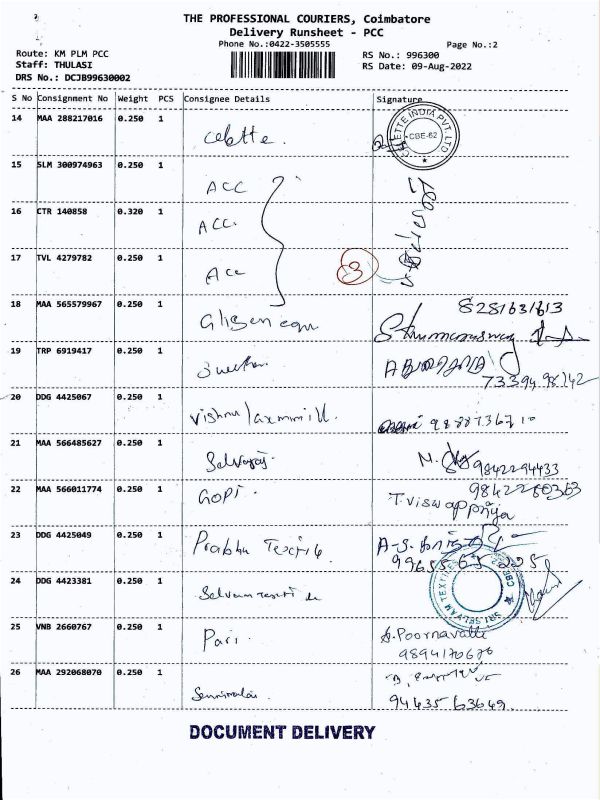 THE PROFESSIONAL COURIERS, Coimbatore
Delivery Runsheet - PCC
Phone No.:0422-3505555
Page No.:2
Route: KM PLM PCC
Staff: THULASI
DRS No.: DCJB99630002
RS No.: 996300
RS Date: 09-Aug-2022
S No Consignment No Weight PCS Consignee Details Signature
14 MAA 288217016 0.250 1 Celette.
CELETTE INDIA PVT. LTD
CBE-62
15 SLM 300974963 0.250 1 ACC
16 CTR 140858 0.320 1 ACC.
17 TVL 4279782 0.250 1 ACC
3
18 MAA 565579967 0.250 1
19 TRP 6919417 0.250 1
20 DDG 4425067 0.250 1 Vishnu laxmmi
21 MAA 566485627 0.250 1 Selvaraj. 9842294433
22 MAA 566011774 0.250 1 GOPI. T. Viswappriya
23 DDG 4425049 0.250 1 Prabhu Textile
24 DDG 4423381 0.250 1 Selvam
SRI SELVAM TEXTILE
25 VNB 2660767 0.250 1 Pari. Poornavalli
9894170676
26 MAA 292068070 0.250 1
94435 63649.
DOCUMENT DELIVERY